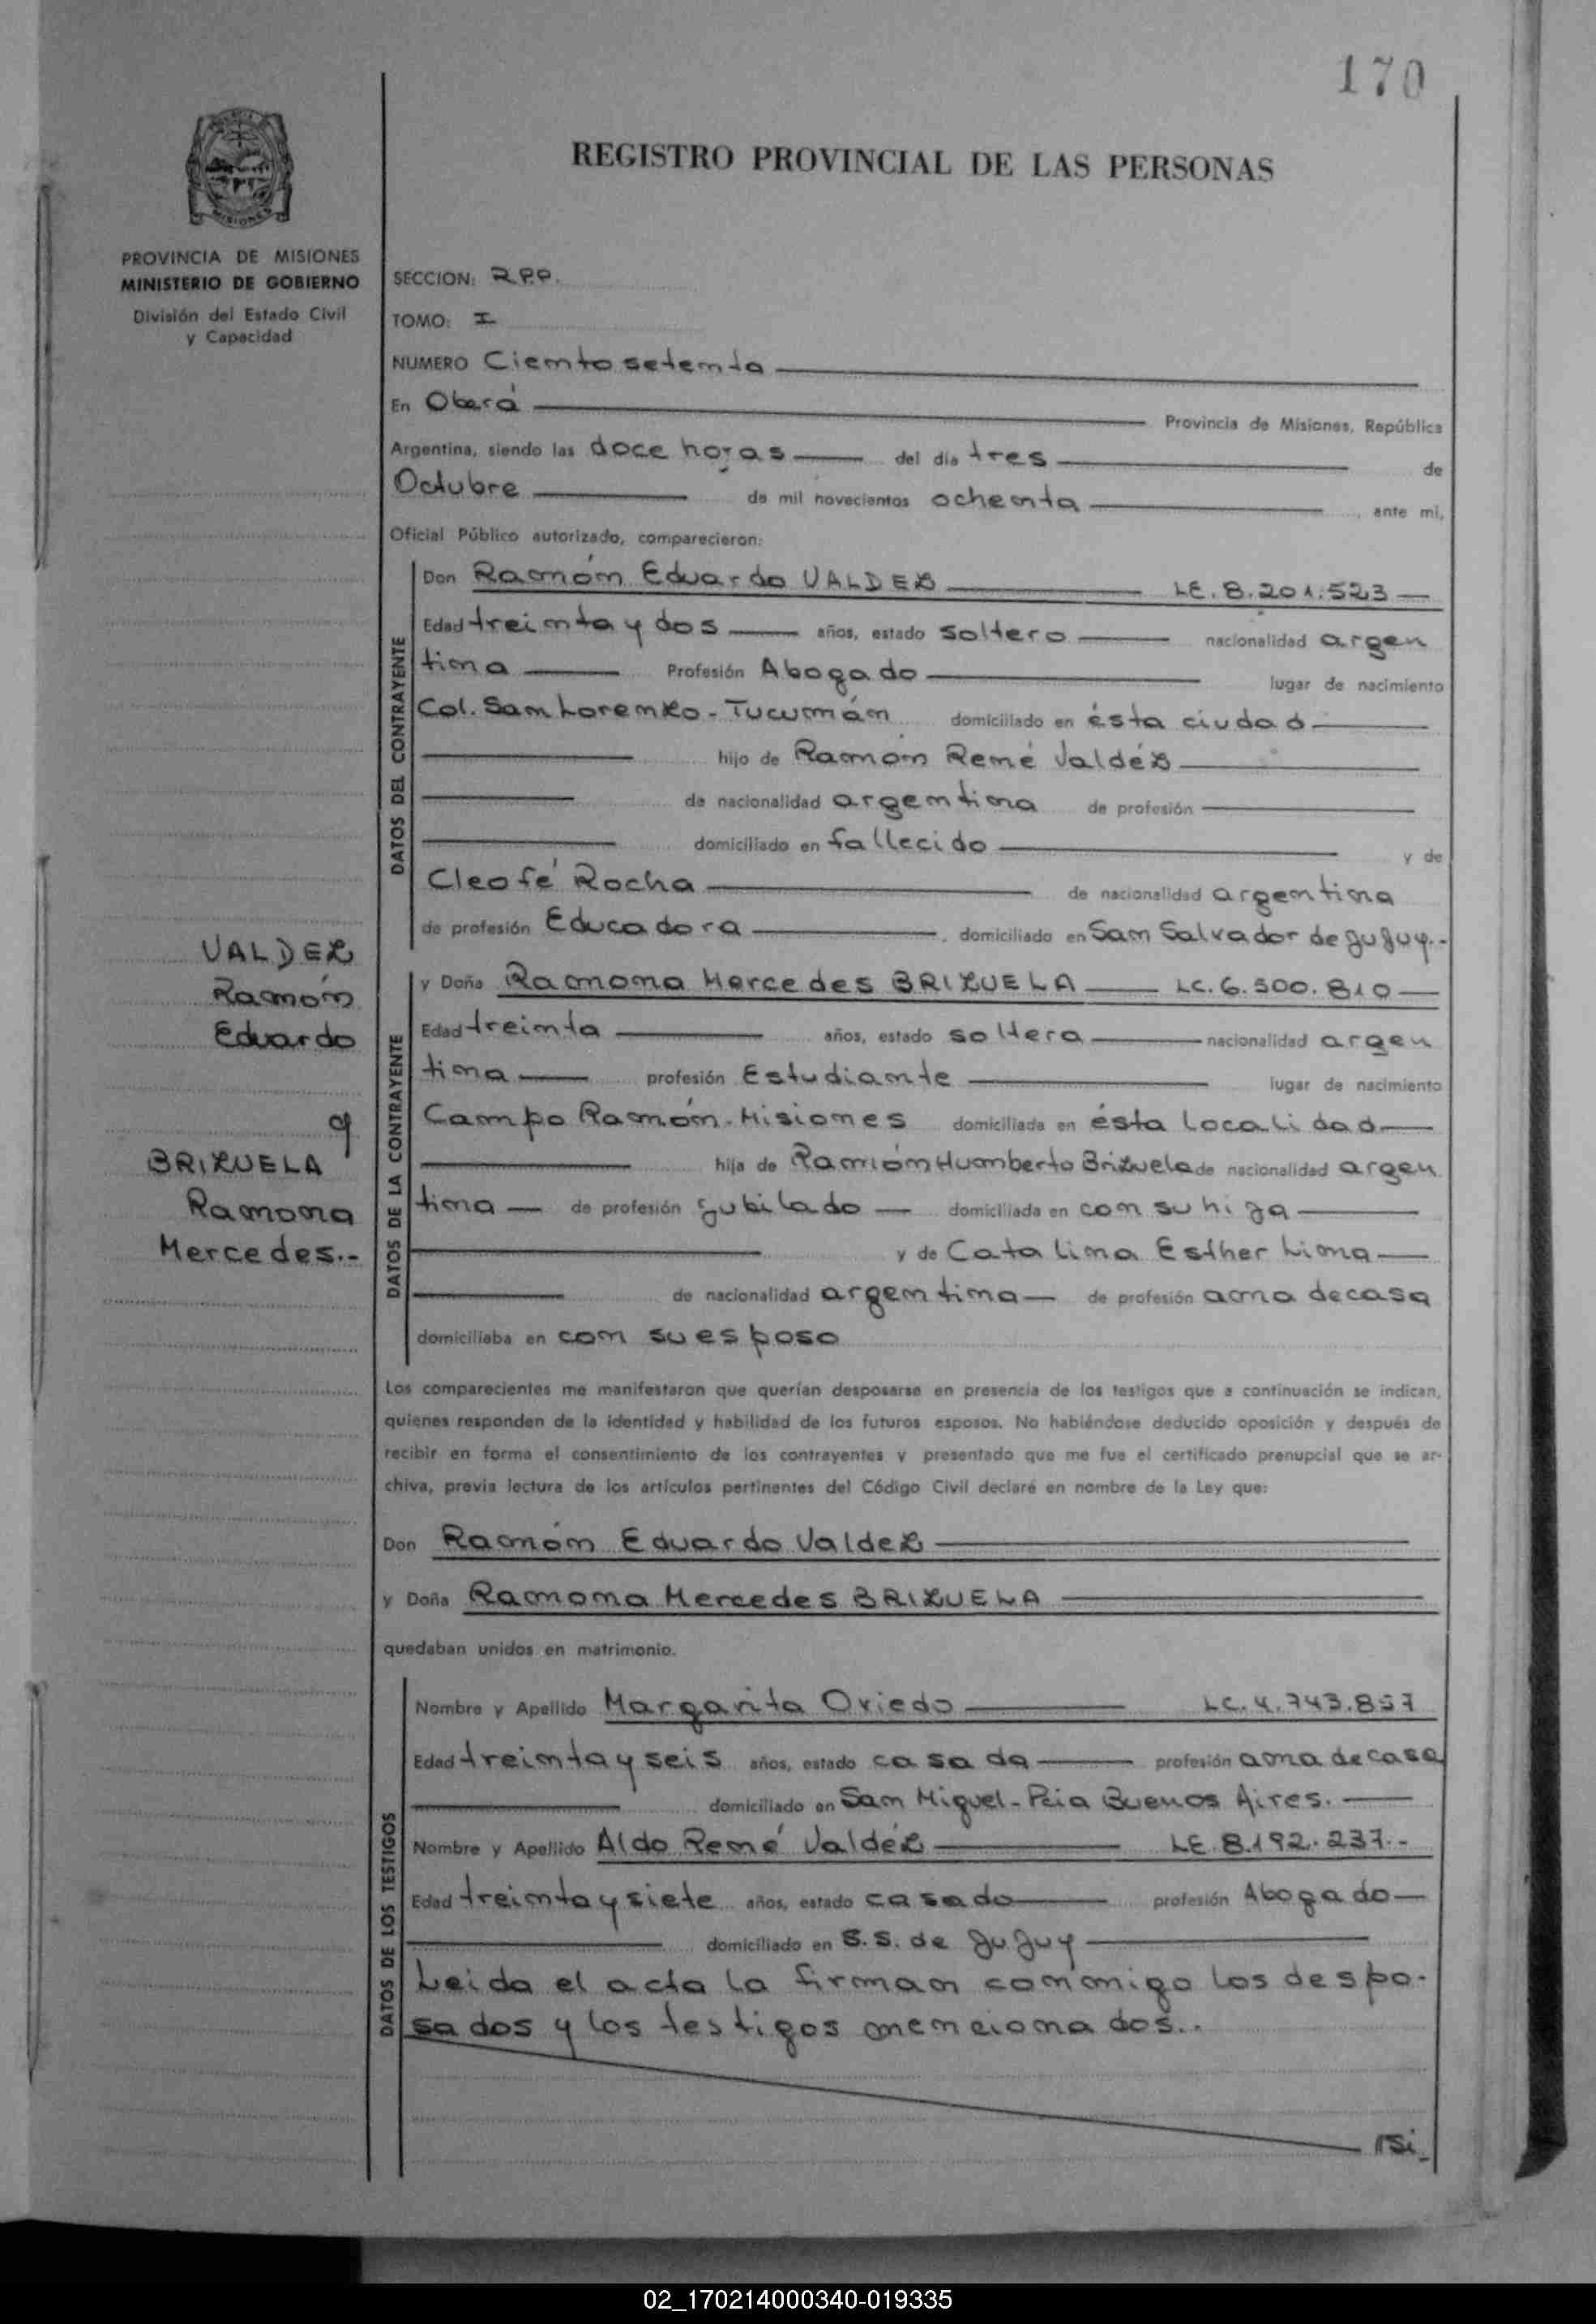 170
REGISTRO PROVINCIAL DE LAS PERSONAS
MISIONES
PROVINCIA DE MISIONES
MINISTERIO DE GOBIERNO
División del Estado Civil
y Capacidad
SECCION: R.P.P.
TOMO: I
NUMERO Ciento setenta
En Oberá Provincia de Misiones, República
Argentina, siendo las doce horas del día tres de
Octubre de mil novecientos ochenta, ante mi,
Oficial Público autorizado, comparecieron:
DATOS DEL CONTRAYENTE
Don Ramón Eduardo VALDEZ LE. 8.201.523
Edad treinta y dos años, estado soltero nacionalidad argen
tina Profesión Abogado lugar de nacimiento
Col. San Lorenzo - Tucumán domiciliado en ésta ciudad
hijo de Ramón René Valdéz
de nacionalidad argentina de profesión
domiciliado en fallecido y de
Cleofé Rocha de nacionalidad argentina
de profesión Educadora, domiciliado en San Salvador de Jujuy.-
VALDEZ
Ramón
Eduardo
y
BRIZUELA
Ramona
Mercedes.-
DATOS DE LA CONTRAYENTE
y Doña Ramona Mercedes BRIZUELA LC. 6.500.810
Edad treinta años, estado soltera nacionalidad argen
tina profesión Estudiante lugar de nacimiento
Campo Ramón - Misiones domiciliada en ésta localidad
hija de Ramón Humberto Brizuela de nacionalidad argen
tina de profesión jubilado domiciliada en con su hija
y de Catalina Esther Lima
de nacionalidad argentina de profesión ama de casa
domiciliaba en con su esposo
Los comparecientes me manifestaron que querían desposarse en presencia de los testigos que a continuación se indican,
quienes responden de la identidad y habilidad de los futuros esposos. No habiéndose deducido oposición y después de
recibir en forma el consentimiento de los contrayentes y presentado que me fue el certificado prenupcial que se ar-
chiva, previa lectura de los artículos pertinentes del Código Civil declaré en nombre de la Ley que:
Don Ramón Eduardo Valdez
y Doña Ramona Mercedes BRIZUELA
quedaban unidos en matrimonio.
DATOS DE LOS TESTIGOS
Nombre y Apellido Margarita Oviedo LC. 4.743.857
Edad treinta y seis años, estado casada profesión ama de casa
domiciliado en San Miguel - Pcia Buenos Aires.
Nombre y Apellido Aldo René Valdéz LE. 8.192.237.-
Edad treinta y siete años, estado casado profesión Abogado
domiciliado en S.S. de Jujuy
Leida el acta la firman conmigo los despo-
sados y los testigos mencionados..
02_170214000340-019335